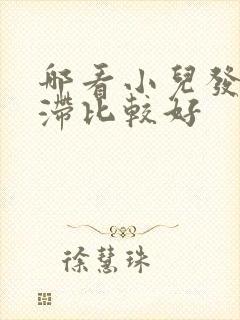 那看小兒發
滯比較好
徐慧珠